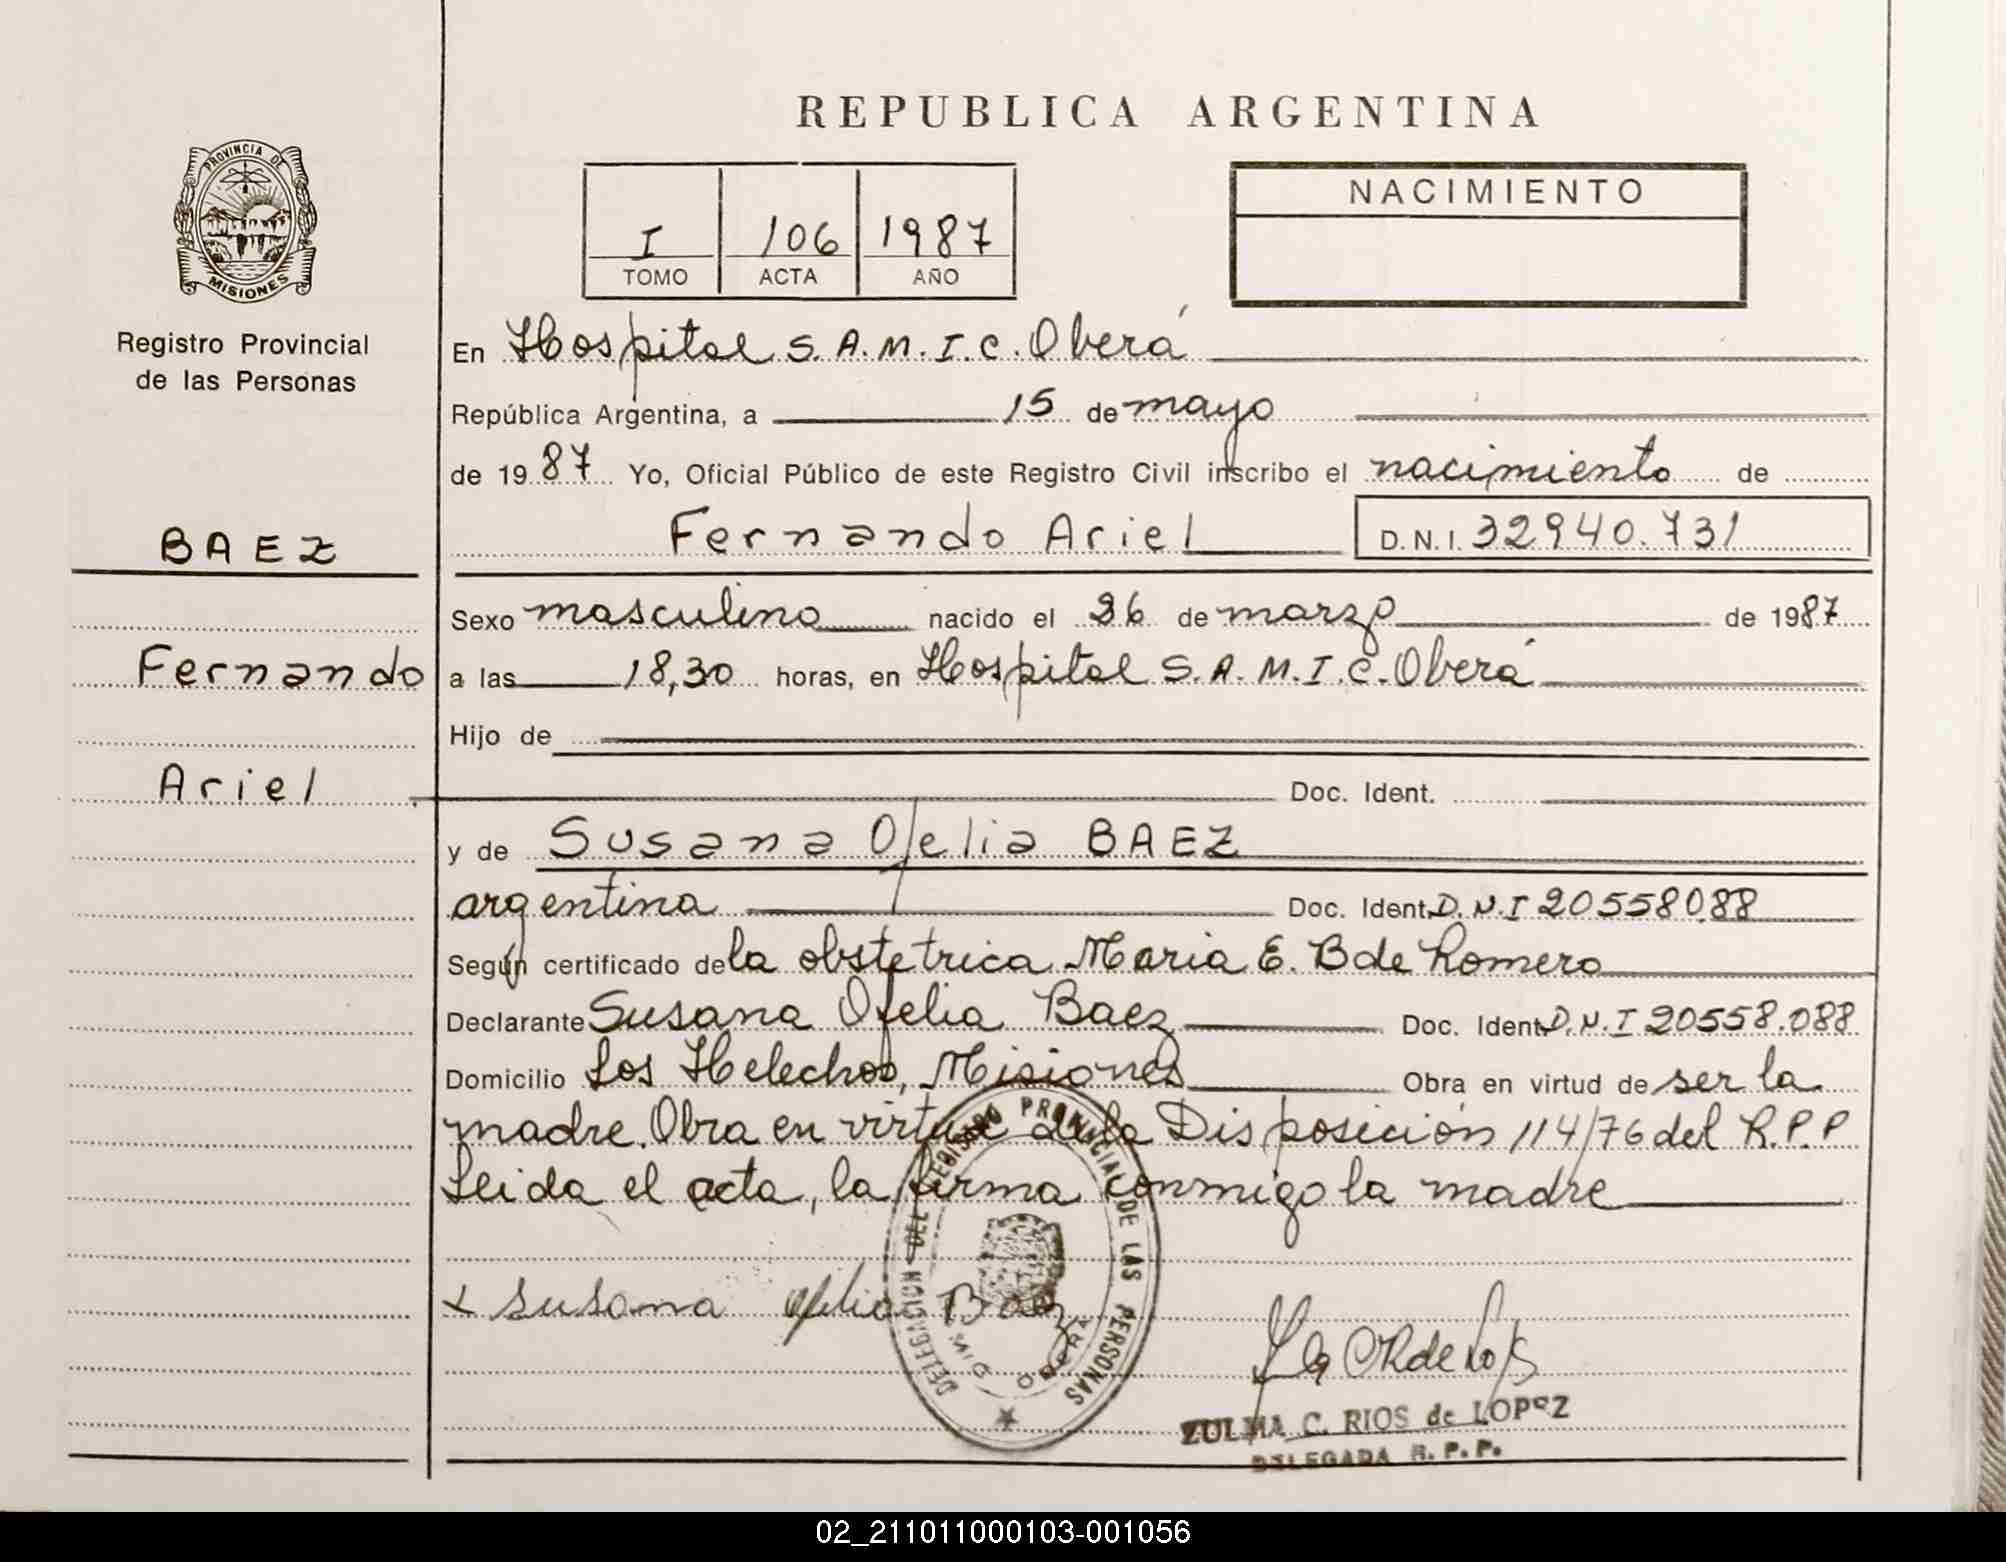 REPUBLICA ARGENTINA
PROVINCIA DE MISIONES
Registro Provincial
de las Personas
I 106 1987
TOMO ACTA AÑO
NACIMIENTO
En Hospital S.A.M.I.C. Oberá
República Argentina, a 15 de mayo
de 1987 Yo, Oficial Público de este Registro Civil inscribo el nacimiento de
BAEZ
Fernando Ariel D.N.I. 32940.731
Sexo masculino nacido el 26 de marzo de 1987
Fernando
a las 18,30 horas, en Hospital S.A.M.I.C. Oberá
Hijo de
Ariel
Doc. Ident.
y de Susana Ofelia BAEZ
argentina Doc. Ident. D.N.I 20558088
Según certificado de la obstetrica Maria E. B de Romero
Declarante Susana Ofelia Baez Doc. Ident. D.N.I 20558.088
Domicilio Los Helechos, Misiones Obra en virtud de ser la
madre. Obra en virtud de la Disposición 114/76 del R.P.P
Leida el acta, la firma conmigo la madre
x susana ofelia Baez
DELEGACION DEL REGISTRO PROVINCIAL DE LAS PERSONAS
OBERA
ZULMA C. RIOS de LOPEZ
DELEGADA R.P.P.
02_211011000103-001056